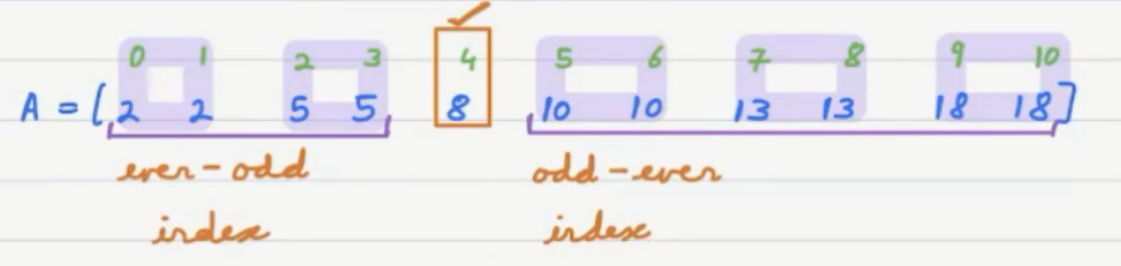 0 1 2 3 4 5 6 7 8 9 10
A = [2 2 5 5 8 10 10 13 13 18 18]
even-odd odd-even
index index